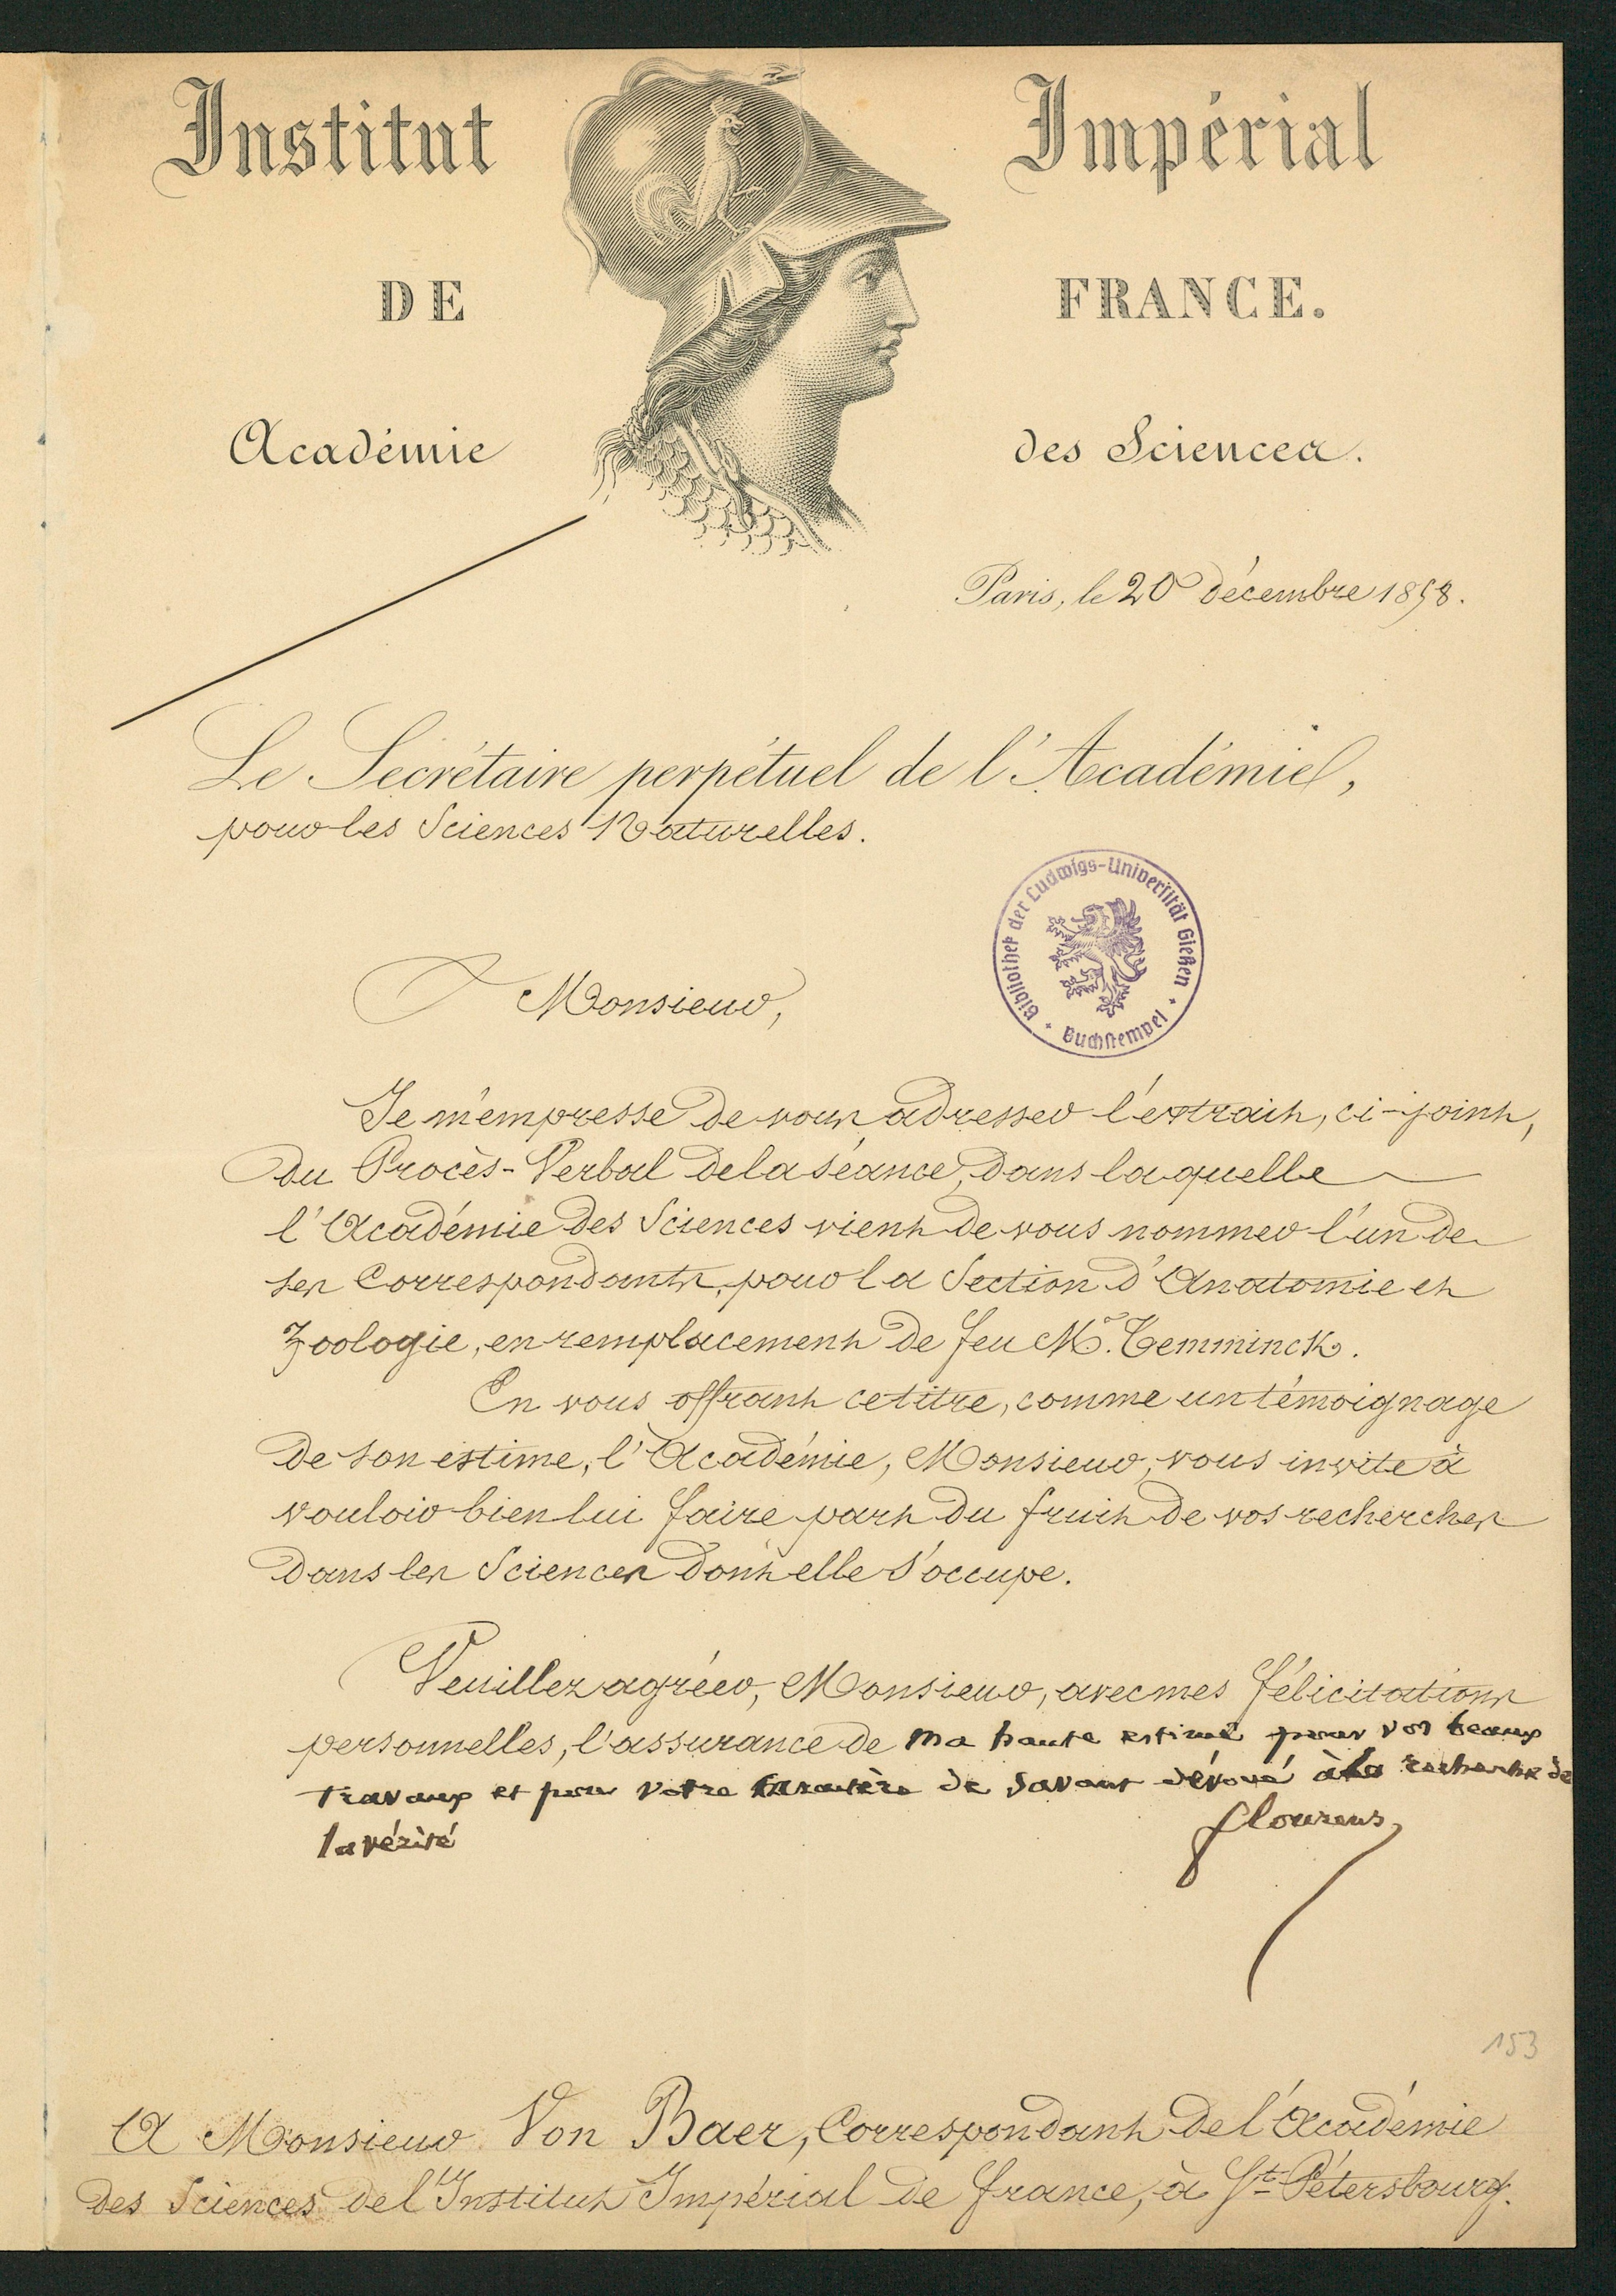 Institut Impérial
DE FRANCE.
Académie des Sciences.
Paris, le 20 décembre 1858.
Le Secrétaire perpétuel de l'Académie,
pour les Sciences Naturelles.
Bibliothek der Ludwigs-Universität Gießen
Buchstempel
Monsieur,
Je m'empresse de vous adresser l'extrait, ci-joint,
du Procès-Verbal de la séance, dans laquelle
l'Académie des Sciences vient de vous nommer l'un de
ses Correspondants, pour la Section d'Anatomie et
Zoologie, en remplacement de feu Mr. Temminck.
En vous offrant ce titre, comme un témoignage
de son estime, l'Académie, Monsieur, vous invite à
vouloir bien lui faire part du fruit de vos recherches
dans les Sciences dont elle s'occupe.
Veuillez agréer, Monsieur, avec mes félicitations
personnelles, l'assurance de ma haute estime pour vos beaux
travaux et pour votre caractère de savant dévoué à la recherche de
la vérité
flourens
153
A Monsieur Von Baer, Correspondant de l'Académie
des Sciences de l'Institut Impérial de France, à St. Pétersbourg.